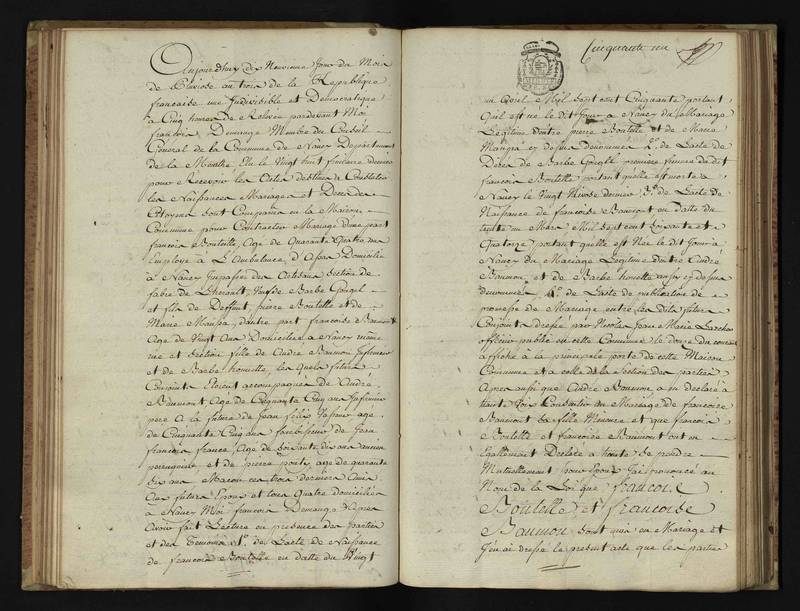 Aujourd'huy dix Neuvieme Jour du Mois
de Pluviose an trois de la Republique
francaise une Indivisible et Democratique
à Cinq heures de Relevée pardevant Moi
francois Demange Membre du Conseil
General de la Commune de Nancy Département
de la Meurthe Elu le Vingt huit frimaire dernier
pour Recevoir les Actes destinés à Constater
les Naissances Mariages et Decès des
Citoyens sont Comparus en la Maison
Commune pour Contracter Mariage d'une part
francois Boutelle, Age de Quarante Quatre ans
Employé à L'Ambulance, Domicilié
à Nancy des Artisans Section de
fabre de L'herault Veuf de Barbe
et fils de Deffunt pierre Boutelle et de
Marie d'autre part francoise Baumont
Age de Vingt ans Domiciliée à Nancy même
rue et Section fille de André Baumon Infirmier
et de Barbe les quels futurs
Conjoints Etoient accompagnés de André
Baumont Age de Cinquante Cinq ans Infirmier
pere à la future de Jean age
de Cinquante Cinq ans de Jean
francois france, Age de Soixante dix ans ancien
perruquier et de pierre age de quarante
dix ans Macon les trois derniers amis
des futurs Epoux et tous Quatre domiciliés
à Nancy Moi francois Demange Après
avoir fait Lecture en presence des parties
et des Temoins 1°. de L'acte de Naissance
de francois Boutelle en datte du Vingt
Cinquante un
un Avril Mil Sept cent Cinquante portant
Qu'il est né le dit Jour à Nancy du Mariage
Légitime d'entre pierre Boutelle et de Marie
cy dessus denommés 2°. de L'acte de
Decès de Barbe premiere femme du dit
francois Boutelle portant quelle est morte à
Nancy le Vingt Nivose dernier 3°. de L'acte de
Naissance de francoise Baumont en datte du
trente un Mars Mil Sept cent Soixante et
Quatorze portant quelle est Née le dit Jour à
Nancy du Mariage Légitime d'entre André
Baumon et de Barbe aussi cy dessus
denommés 4°. de L'acte de publication de
promesse de Mariage entre les dits futurs
Conjoints dressé par Nicolas Jean Marie
officier public en cette Commune le douze du courant
affiché à la principale porte de cette Maison
Commune et à celle de la Section des parties
Apres aussi que André Baumon a eu declaré à
haute Voix Consentir au Mariage de francoise
Baumont Sa fille Mineure et que francois
Boutelle et francoise Baumont ont eu
Egallement Declaré à haute Se prendre
Mutuellement pour Epoux J'ai prononcé au
Nom de la Loi que francois
Boutelle et francoise
Baumon Sont unis en Mariage et
J'en ai dressé le present acte que les parties